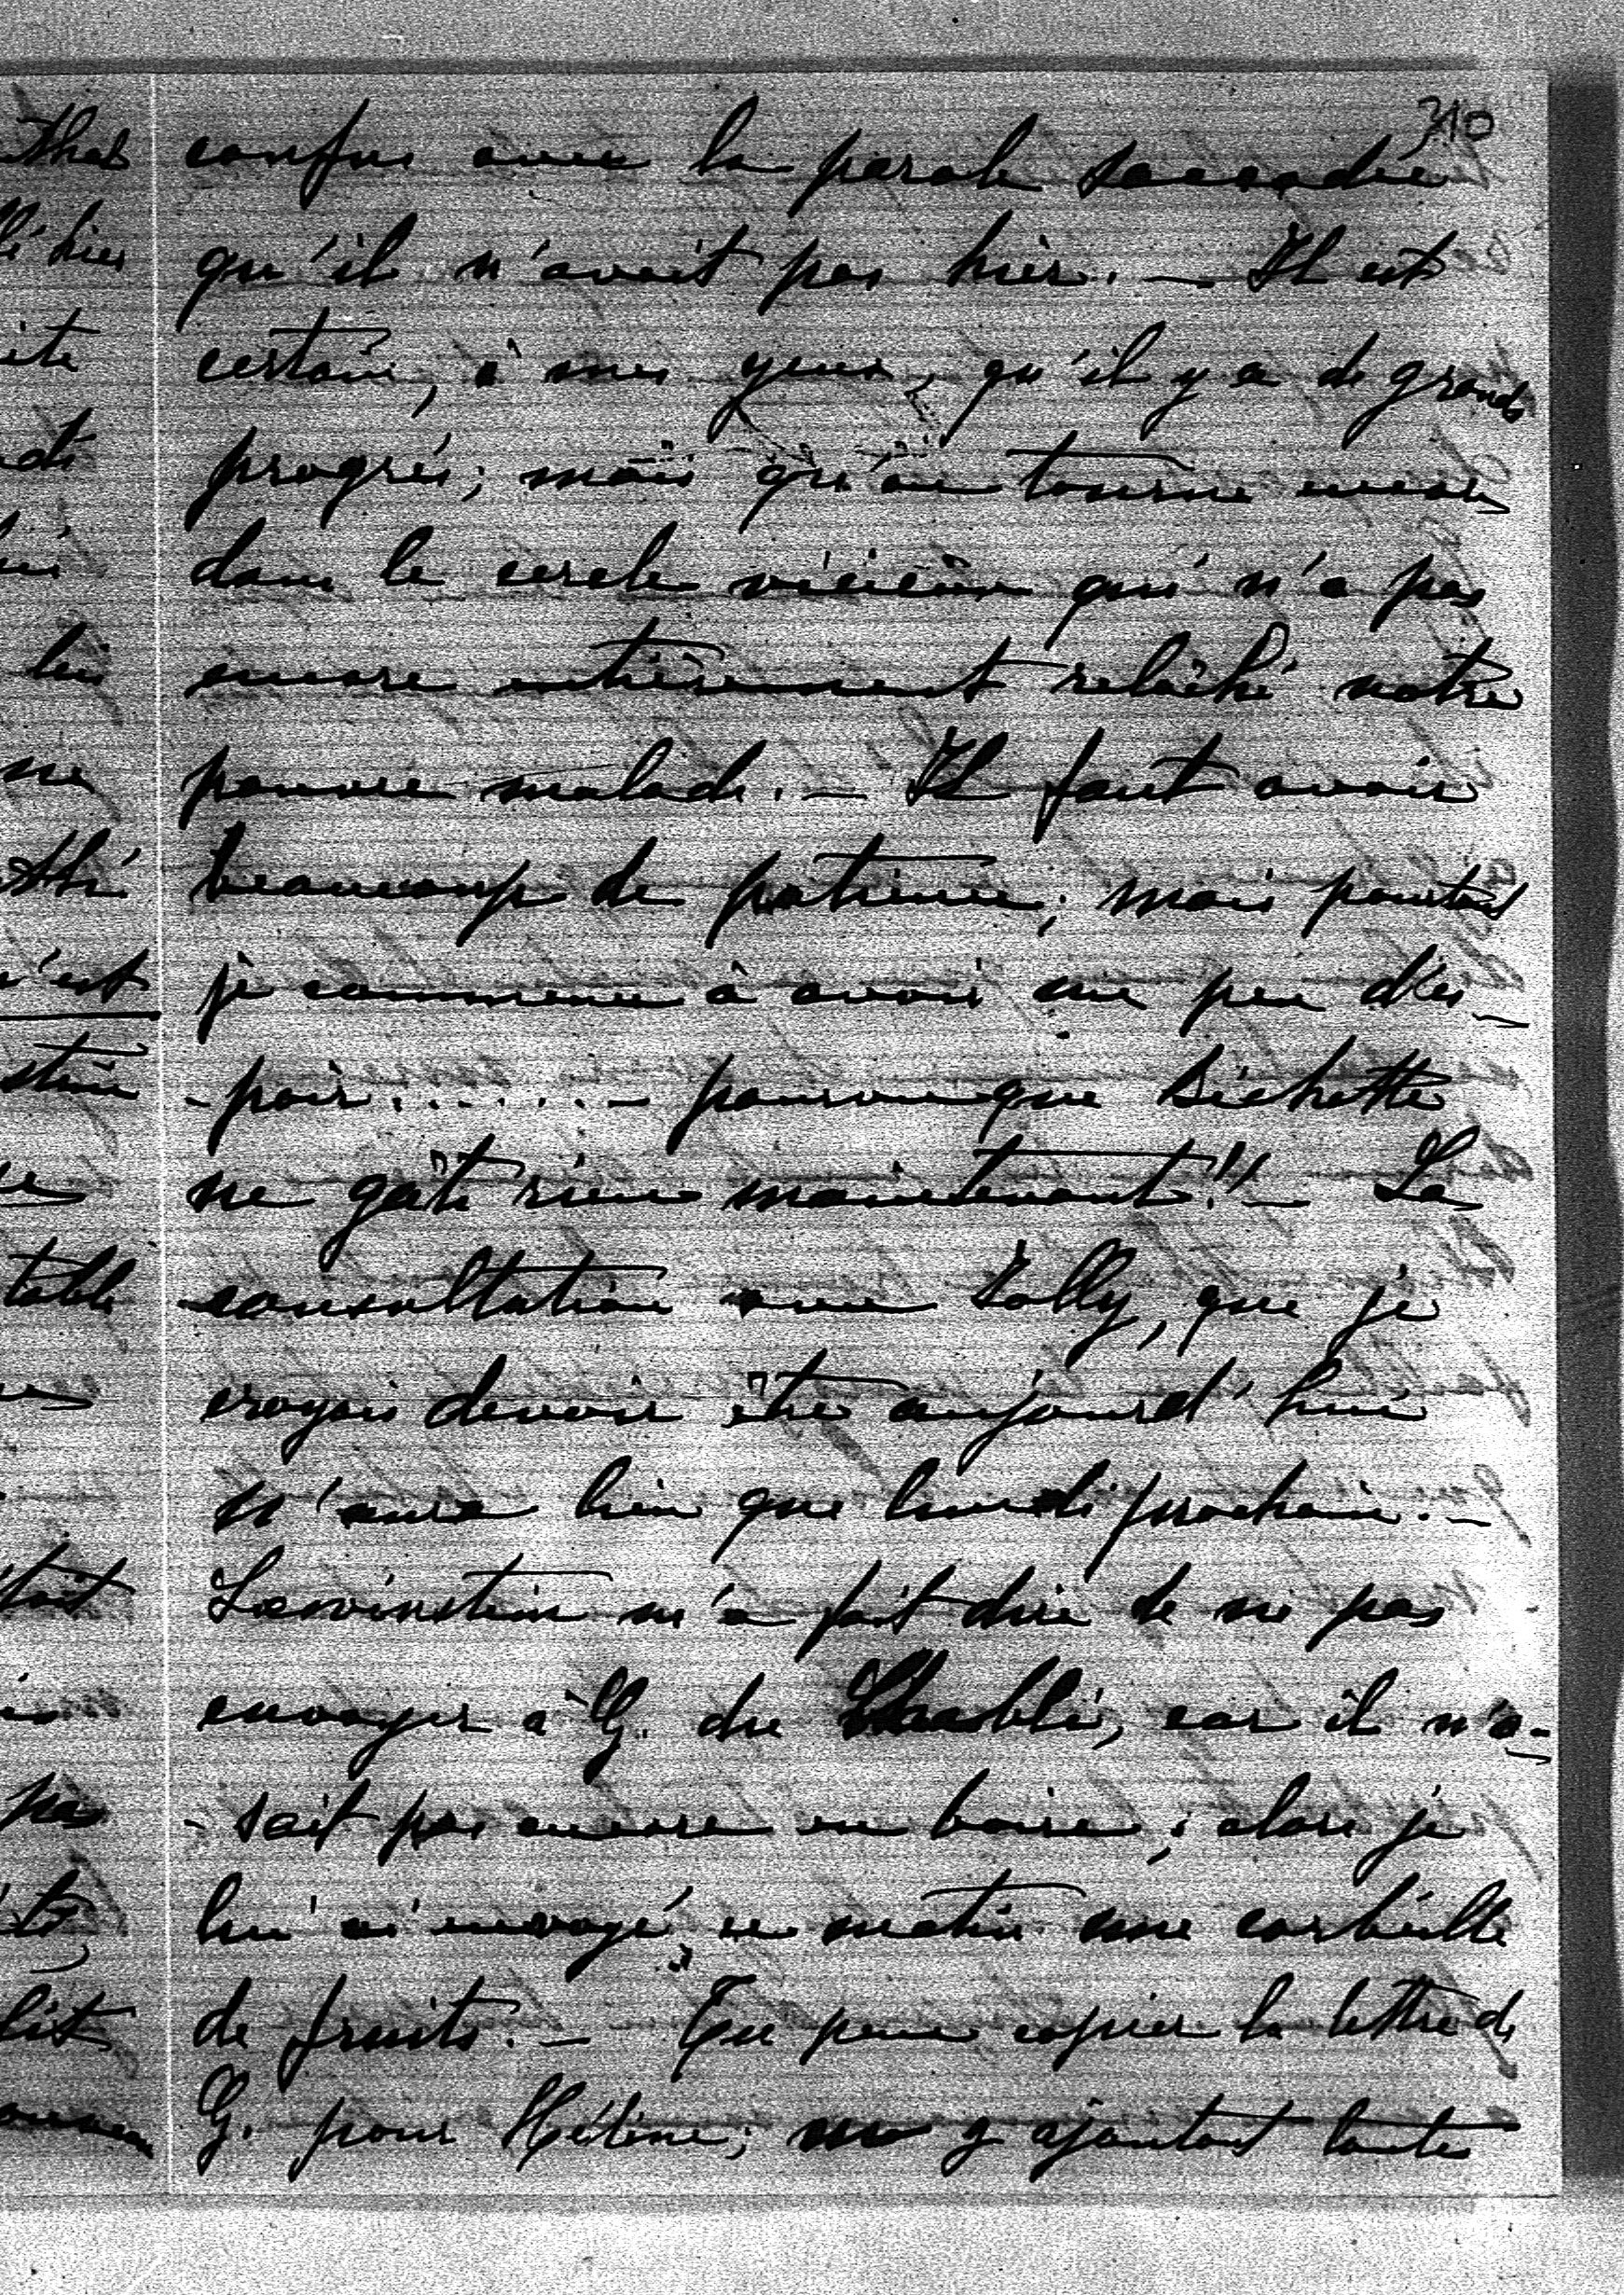 310
confus avec la parole saccadée
qu'il n'avait pas hier. — Il est
certain, à mes yeux, qu'il y a de grands
progrès; mais qu'on tourne encore
dans le cercle vicieux qui n'a pas
encore entièrement relâché notre
pauvre malade. — Il faut avoir
beaucoup de patience; mais pourtant
je commence à avoir un peu d'es-
-poir....... — pourvu que Bichette
ne gâte rien maintenant!! — La
consultation avec Jolly, que je
croyais devoir être aujourd'hui
n'aura lieu que lundi prochain. —
Loewinstein m'a fait dire de ne pas
envoyer à G. du Chablis, car il n'o-
-sait pas encore en boire; alors je
lui ai envoyé, ce matin une corbeille
de fruits. — Tu peux copier la lettre de
G. pour Hélène; en y ajoutant toutes